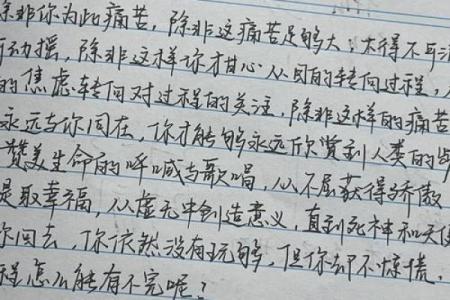 除非你为此痛苦，除非这痛苦足够大；大得不可
动摇，除非这样你才甘心从目的转向过程，
的焦虑转向对过程的关注，除非这样的痛苦
永远与你同在，你才能够永远欣赏到人类的
赞美生命的呼喊与歌唱，从不屈获得骄傲
提取幸福，从虚无中创造意义，直到死神和天使
你回去，你依然没有玩够，但你却不惊慌，
程怎么能有个完呢？